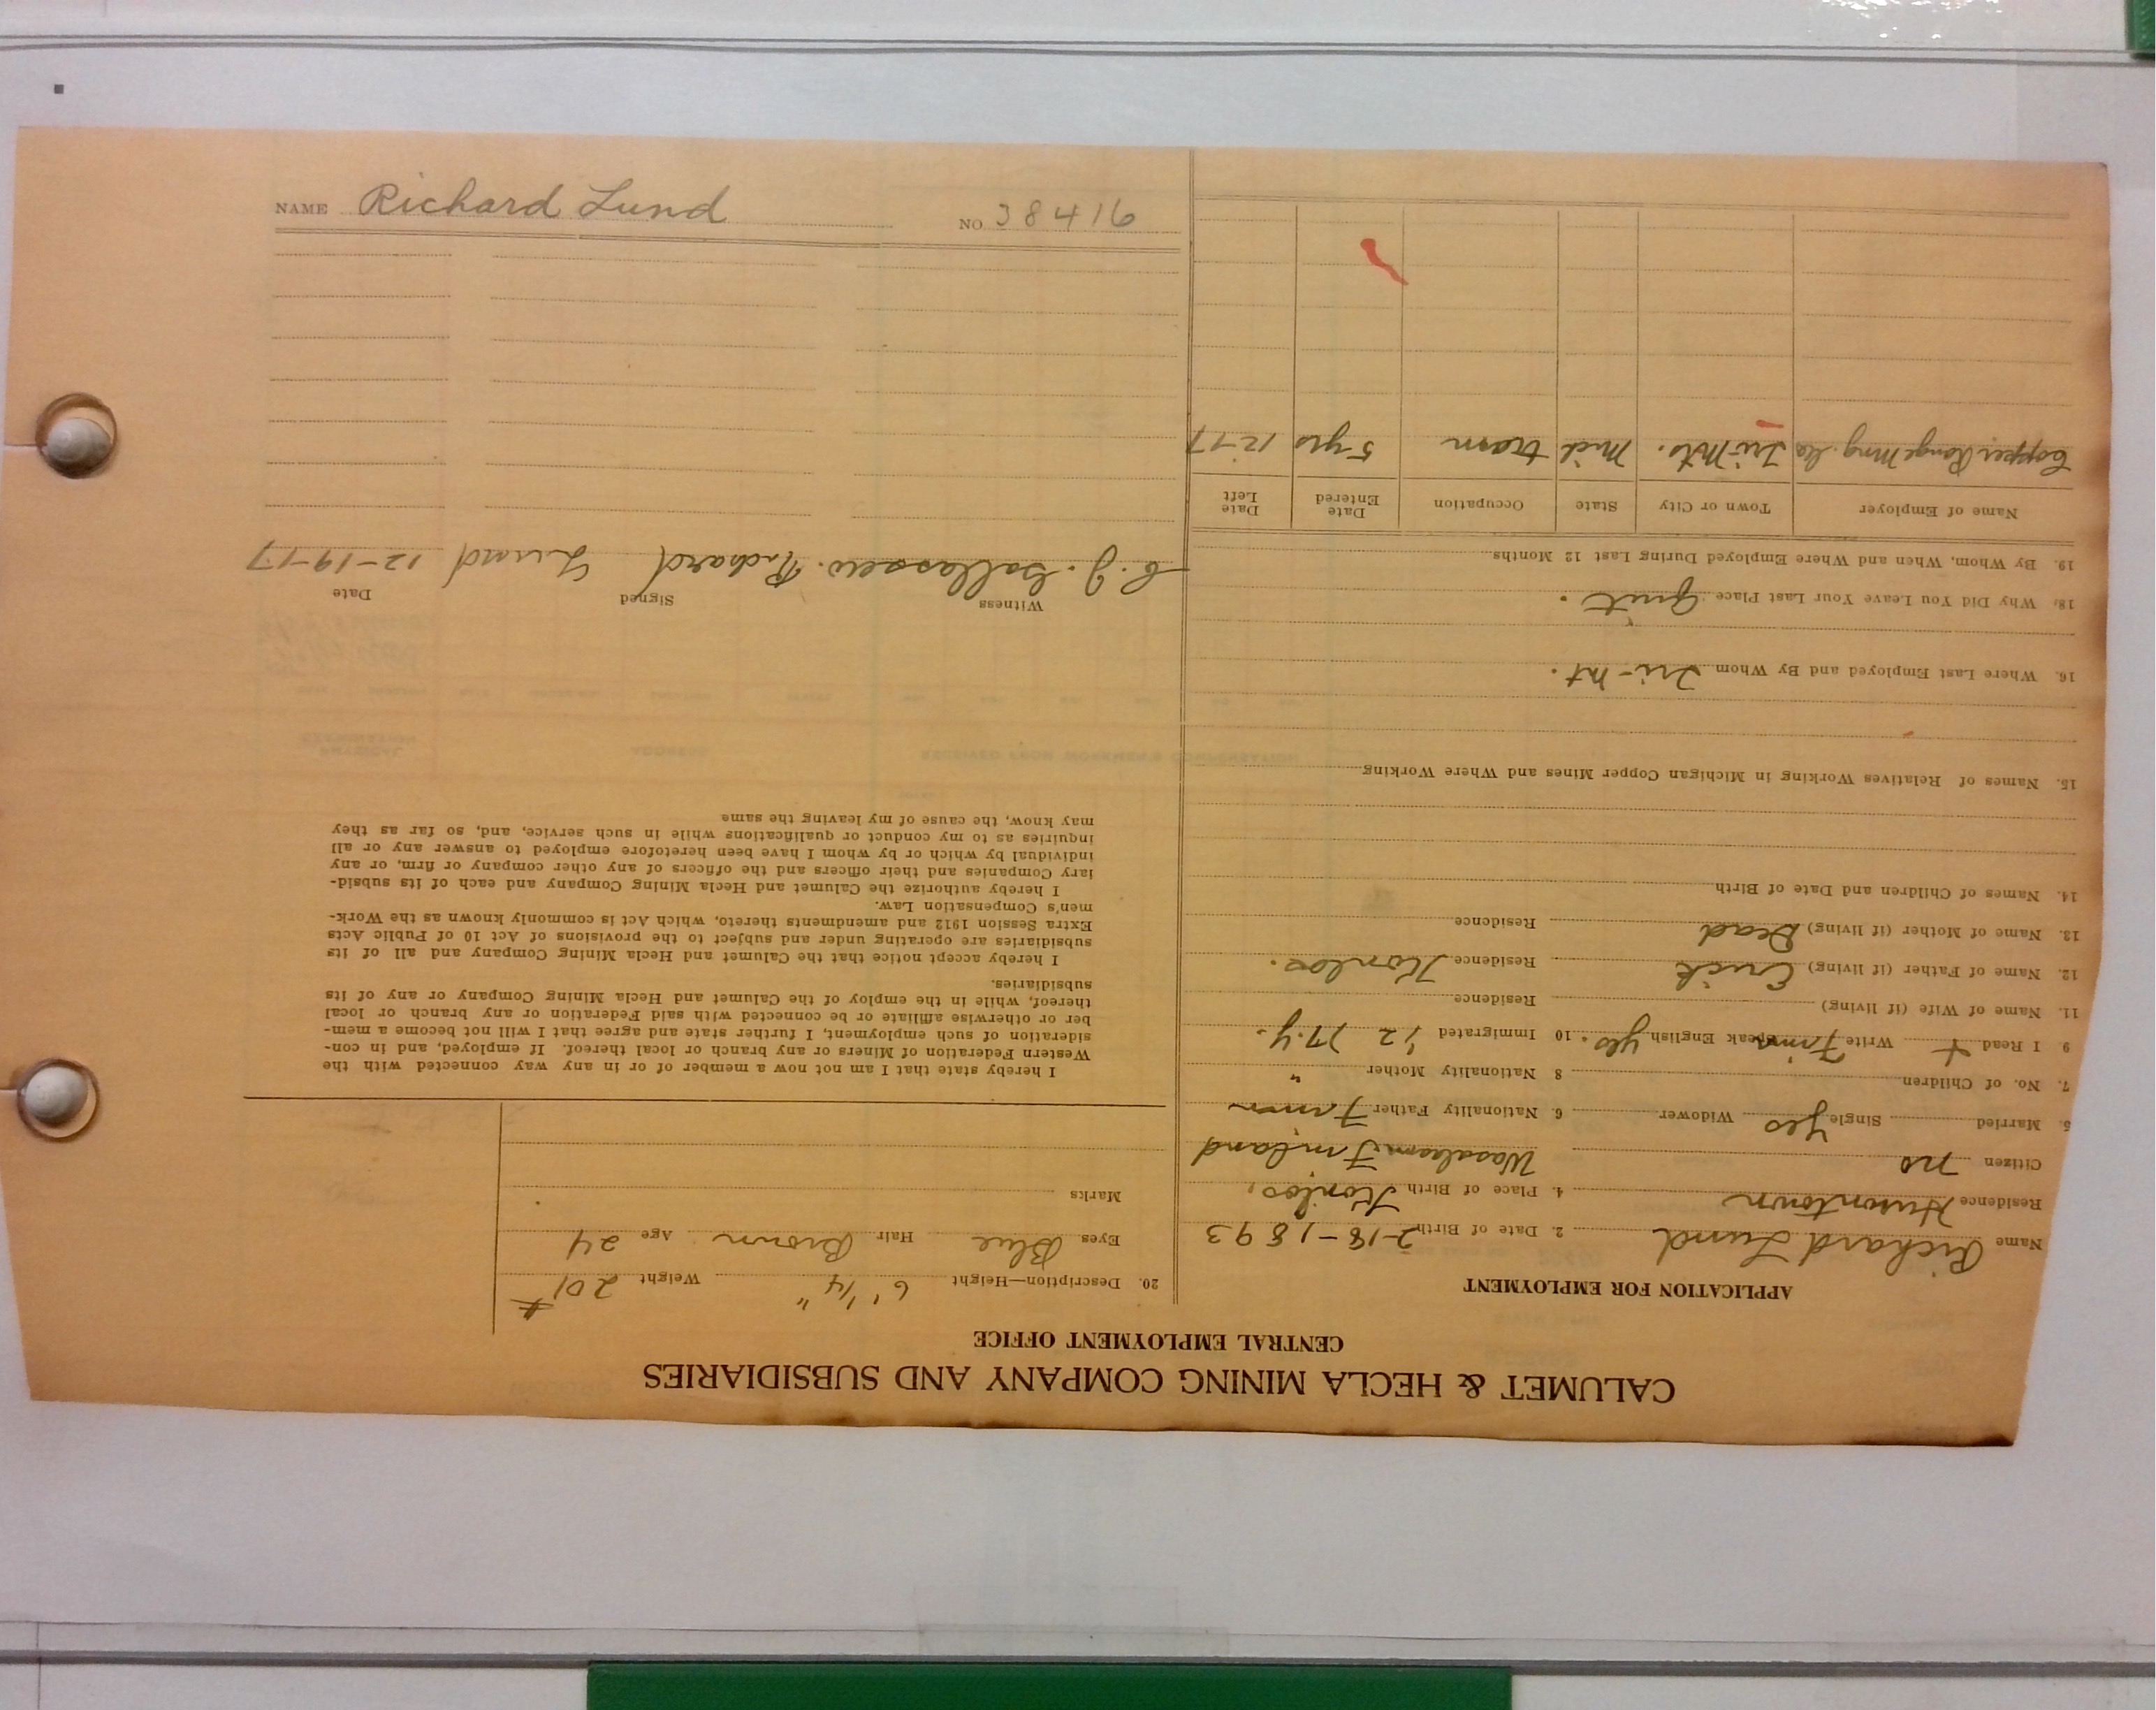 CALUMET & HECLA MINING COMPANY AND SUBSIDIARIES
CENTRAL EMPLOYMENT OFFICE
APPLICATION FOR EMPLOYMENT
Name Richard Lund 2. Date of Birth 2-18-1893
Residence Hurontown 4. Place of Birth
Citizen no Finland
5. Married Single yes Widower 6. Nationality Father Finn
7. No. of Children 8 Nationality Mother "
9. I Read + Write Finn Speak English yes. 10 Immigrated '12 17.y.
11. Name of Wife (if living) Residence
12. Name of Father (if living) Erick Residence
13. Name of Mother (if living) Dead Residence
14. Names of Children and Date of Birth
15. Names of Relatives Working in Michigan Copper Mines and Where Working
16. Where Last Employed and By Whom Tri-Mt.
18. Why Did You Leave Your Last Place Quit.
19. By Whom, When and Where Employed During Last 12 Months
Name of Employer Town or City State Occupation Date Entered Date Left
Copper Range Mng. Co Tri-Mt. Mich tram 5 yrs 12-17
20. Description—Height 6' 1/4" Weight 201#
Eyes Blue Hair Brown Age 24
Marks
I hereby state that I am not now a member of or in any way connected with the
Western Federation of Miners or any branch or local thereof. If employed, and in con-
sideration of such employment, I further state and agree that I will not become a mem-
ber or otherwise affiliate or be connected with said Federation or any branch or local
thereof, while in the employ of the Calumet and Hecla Mining Company or any of its
subsidiaries.
I hereby accept notice that the Calumet and Hecla Mining Company and all of its
subsidiaries are operating under and subject to the provisions of Act 10 of Public Acts
Extra Session 1912 and amendments thereto, which Act is commonly known as the Work-
men's Compensation Law.
I hereby authorize the Calumet and Hecla Mining Company and each of its subsid-
iary Companies and their officers and the officers of any other company or firm, or any
individual by which or by whom I have been heretofore employed to answer any or all
inquiries as to my conduct or qualifications while in such service, and, so far as they
may know, the cause of my leaving the same
Witness Signed Date
Richard Lund 12-19-17
NAME Richard Lund NO 38416